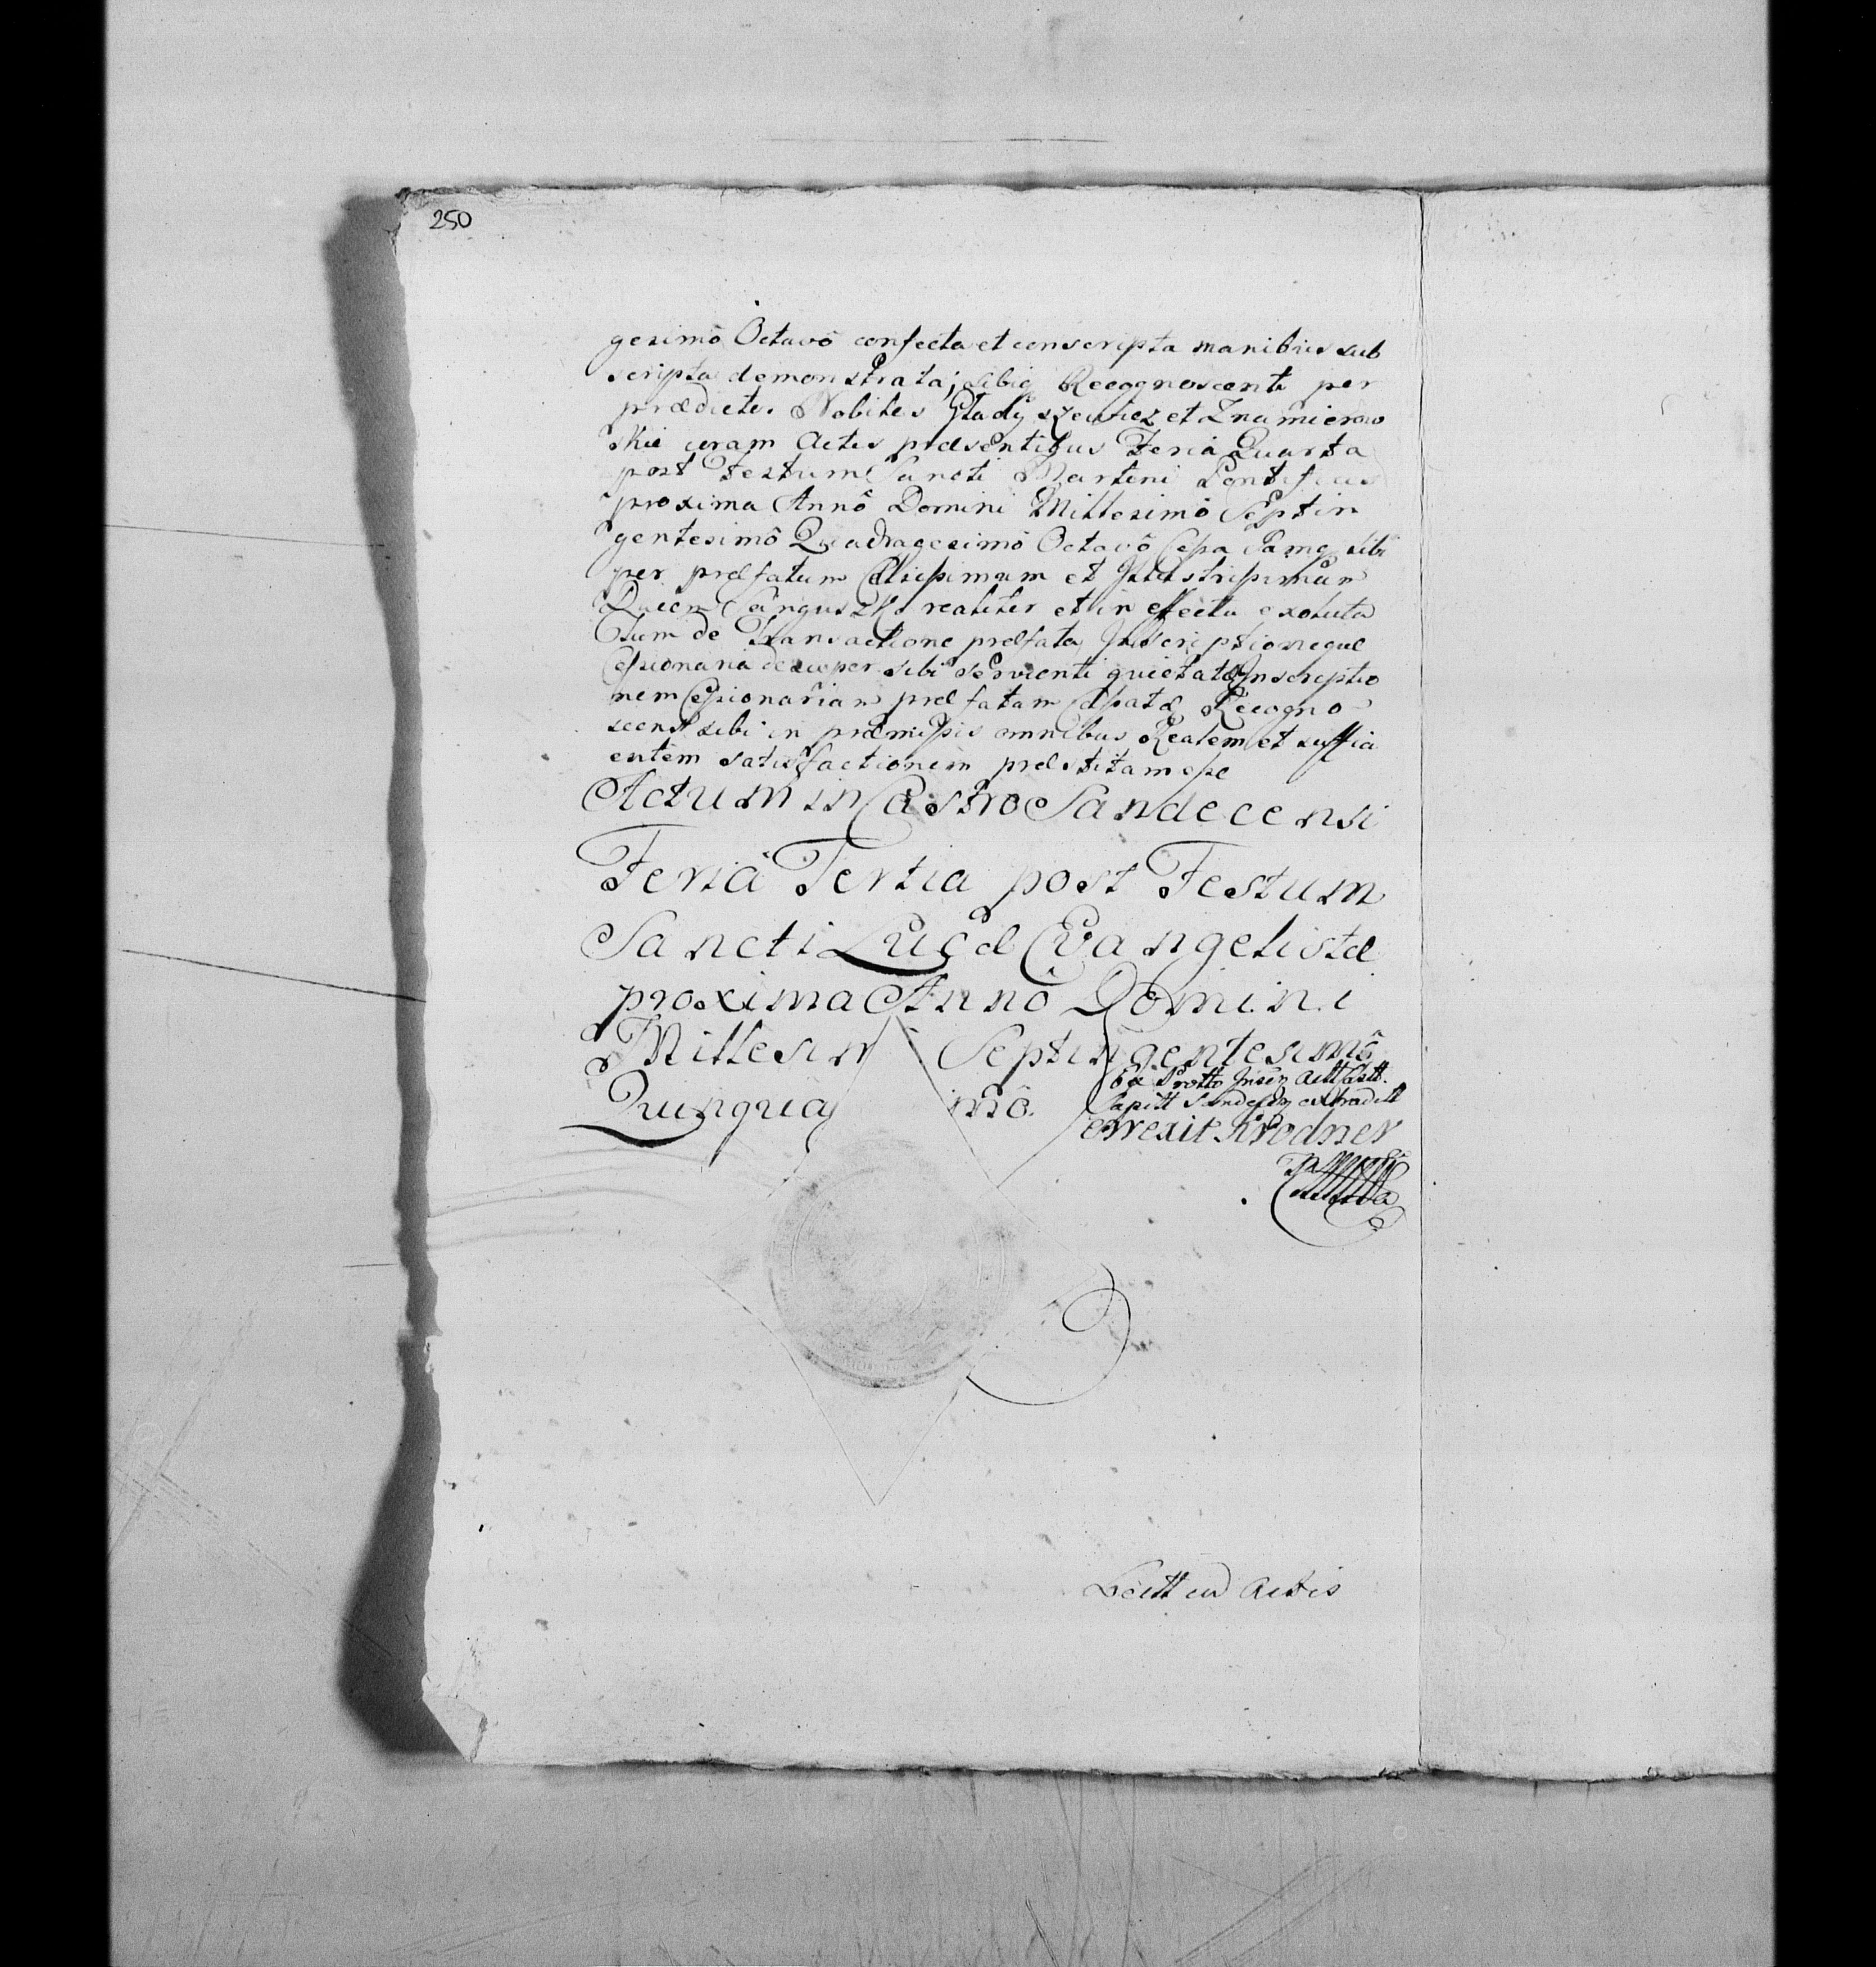 250
gesimô Octavô confecta et conscripta manibus sub
scripta demonstrata; sibiq Recognoscenti per
prædictos Nobiles Gładyszewicz et Znamierow
skie coram Actis præsentibus Feriâ Quarta
post Festum Sancti Martini Pontificis
proxima Annô Domini Millesimô Septin
gentesimô Quadragesimô Octavô Cessa sibi
per præfatum Celsissimum et Illustrissimum
Ducem Sanguszko realiter et in effectu exoluta
Tum de Transactione præfata Inscriptioneque
Cessionaria desuper sibi servienti quietat Inscriptio
nem Cessionariam præfatam Recogno
scens sibi in præmissis omnibus Realem et suffici
entem satisfactionem præstitam esse
Actum in Castro Sandecensi
Feriâ Tertia post Festum
Sancti Lucæ Evangelistæ
proxima Annô Domini
Millesim Septingentesimô
Quinquag imô.
Ex Protto Inscr Actt Castr.
Capitt Sandecen extraditt
Correxit Krodner
Actis